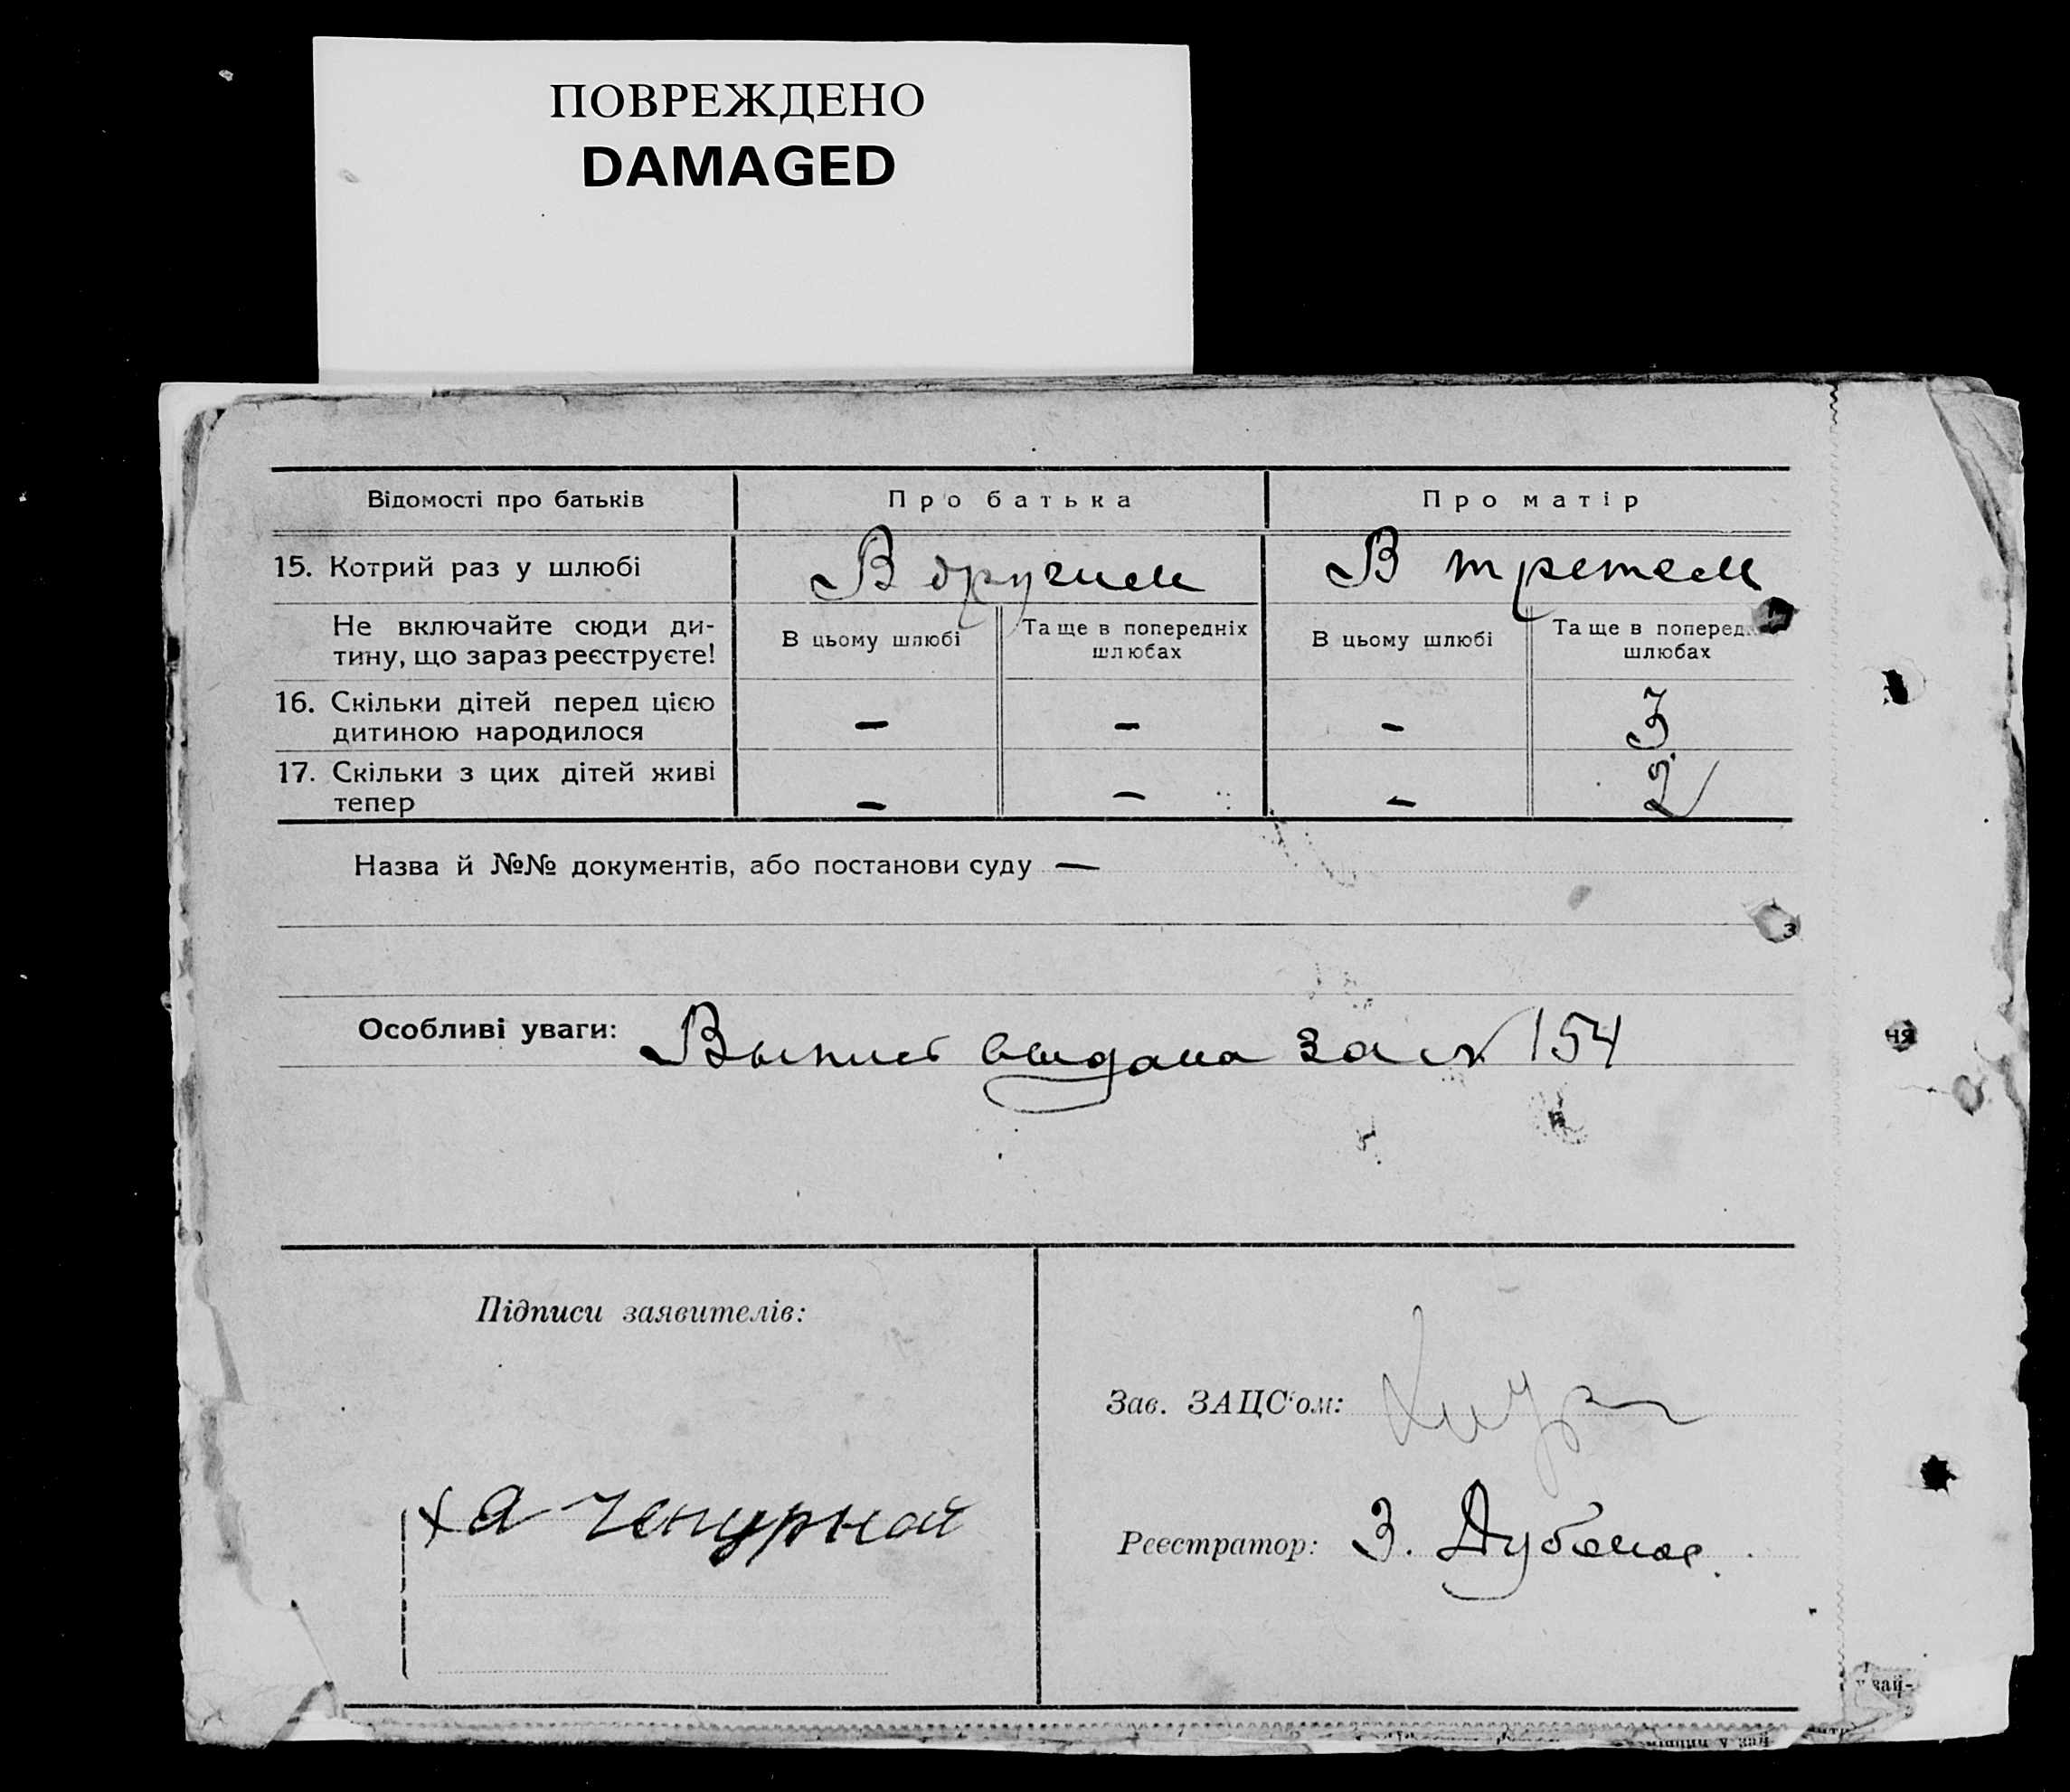 ПОВРЕЖДЕНО
DAMAGED
Відомості про батьків
Про батька
Про матір
15. Котрий раз у шлюбі
В другим
В третем
Не включайте сюди ди-
тину, що зараз реєструєте!
В цьому шлюбі
Та ще в попередніх
шлюбах
В цьому шлюбі
Та ще в поперед
шлюбах
16. Скільки дітей перед цією
дитиною народилося
–
–
–
3
17. Скільки з цих дітей живі
тепер
–
–
–
2
Назва й №№ документів, або постанови суду —
Особливі уваги: Выпись выдана за № 154
Підписи заявителів:
Зав. ЗАЦС'ом:
х а Чепурной
Реєстратор: З. Дубо
ня
зай-